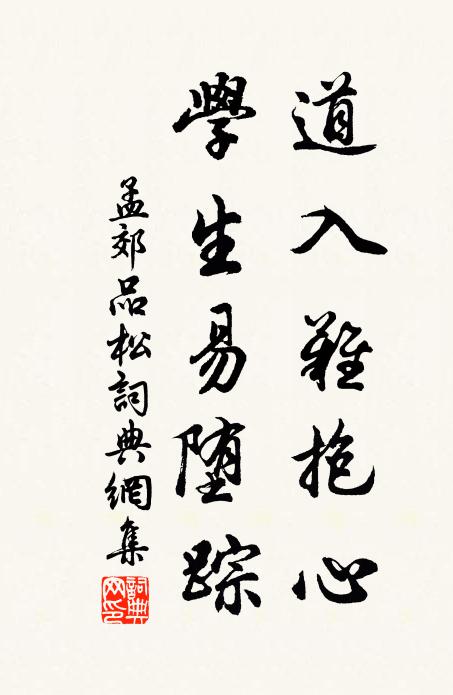 道入難抱心
學生易墮踪
孟郊品松詞典網集
詞典網印